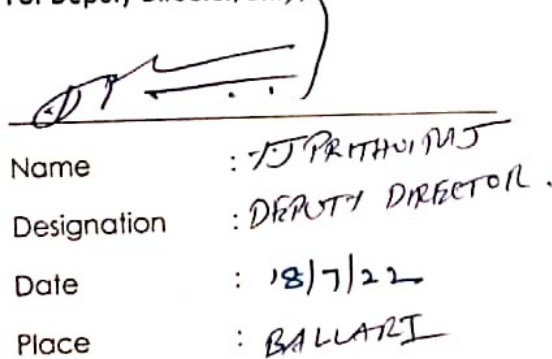 Name :
Designation : DEPUTY DIRECTOR.
Date : 18/7/22
Place : BALLARI